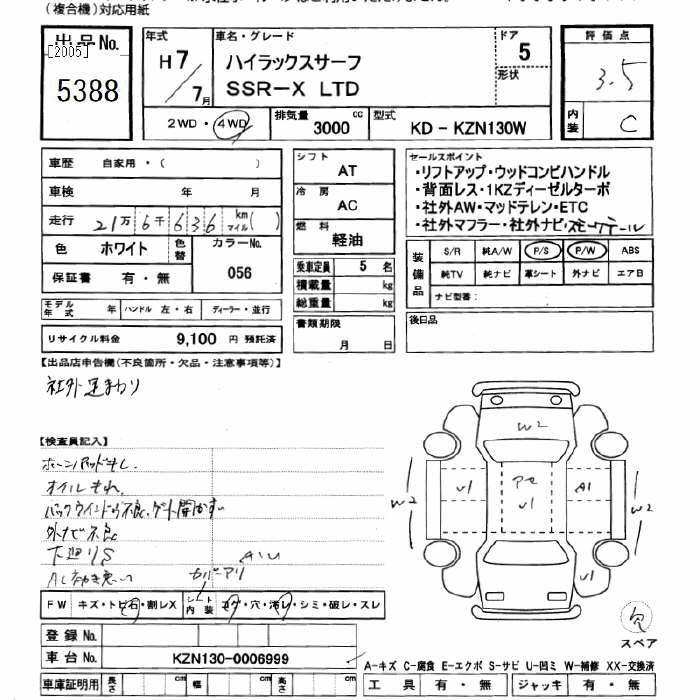 (複合機)対応用紙
出品No.
[2005]
5388
年式
H7/7月
車名・グレード
ハイラックスサーフ
SSR-X LTD
ドア
5
形状
評価点
3.5
内装
C
2WD・4WD
排気量
3000
cc
型式
KD-KZN130W
車歴 自家用・( )
車検 年 月
走行 21万6千636 km マイル( )
色 ホワイト
色替
カラーNo.
056
保証書 有・無
シフト
AT
冷房
AC
燃料
軽油
乗車定員 5 名
積載量 kg
総重量 kg
書類期限
月 日
セールスポイント
・リフトアップ・ウッドコンビハンドル
・背面レス・1KZディーゼルターボ
・社外AW・マッドテレン・ETC
・社外マフラー・社外ナビ・
装備品
S/R 純A/W P/S P/W ABS
純TV 純ナビ 革シート 外ナビ エアB
ナビ型番:
後日品
モデル年式 年 ハンドル 左・右 ディーラー・並行
リサイクル料金 9,100 円 預託済
【出品店申告欄(不良箇所・欠品・注意事項等)】
社外 足まわり
【検査員記入】
ホーンパッドなし
オイルもれ
バックウインドウ不良、ゲート開かず
外ナビ不良
下廻りS
AC効き悪い
カバーアリ
AIU
FW キズ・トビ石・割レX
シート内装 コゲ・穴・汚レ・シミ・破レ・スレ
登録No.
車台No. KZN130-0006999
車庫証明用 長さ cm 幅 cm 高さ cm
W2
W2
U1
アセ
U1
A1
W2
U1
欠
スペア
A-キズ C-腐食 E-エクボ S-サビ U-凹ミ W-補修 XX-交換済
工具 有・無 ジャッキ 有・無